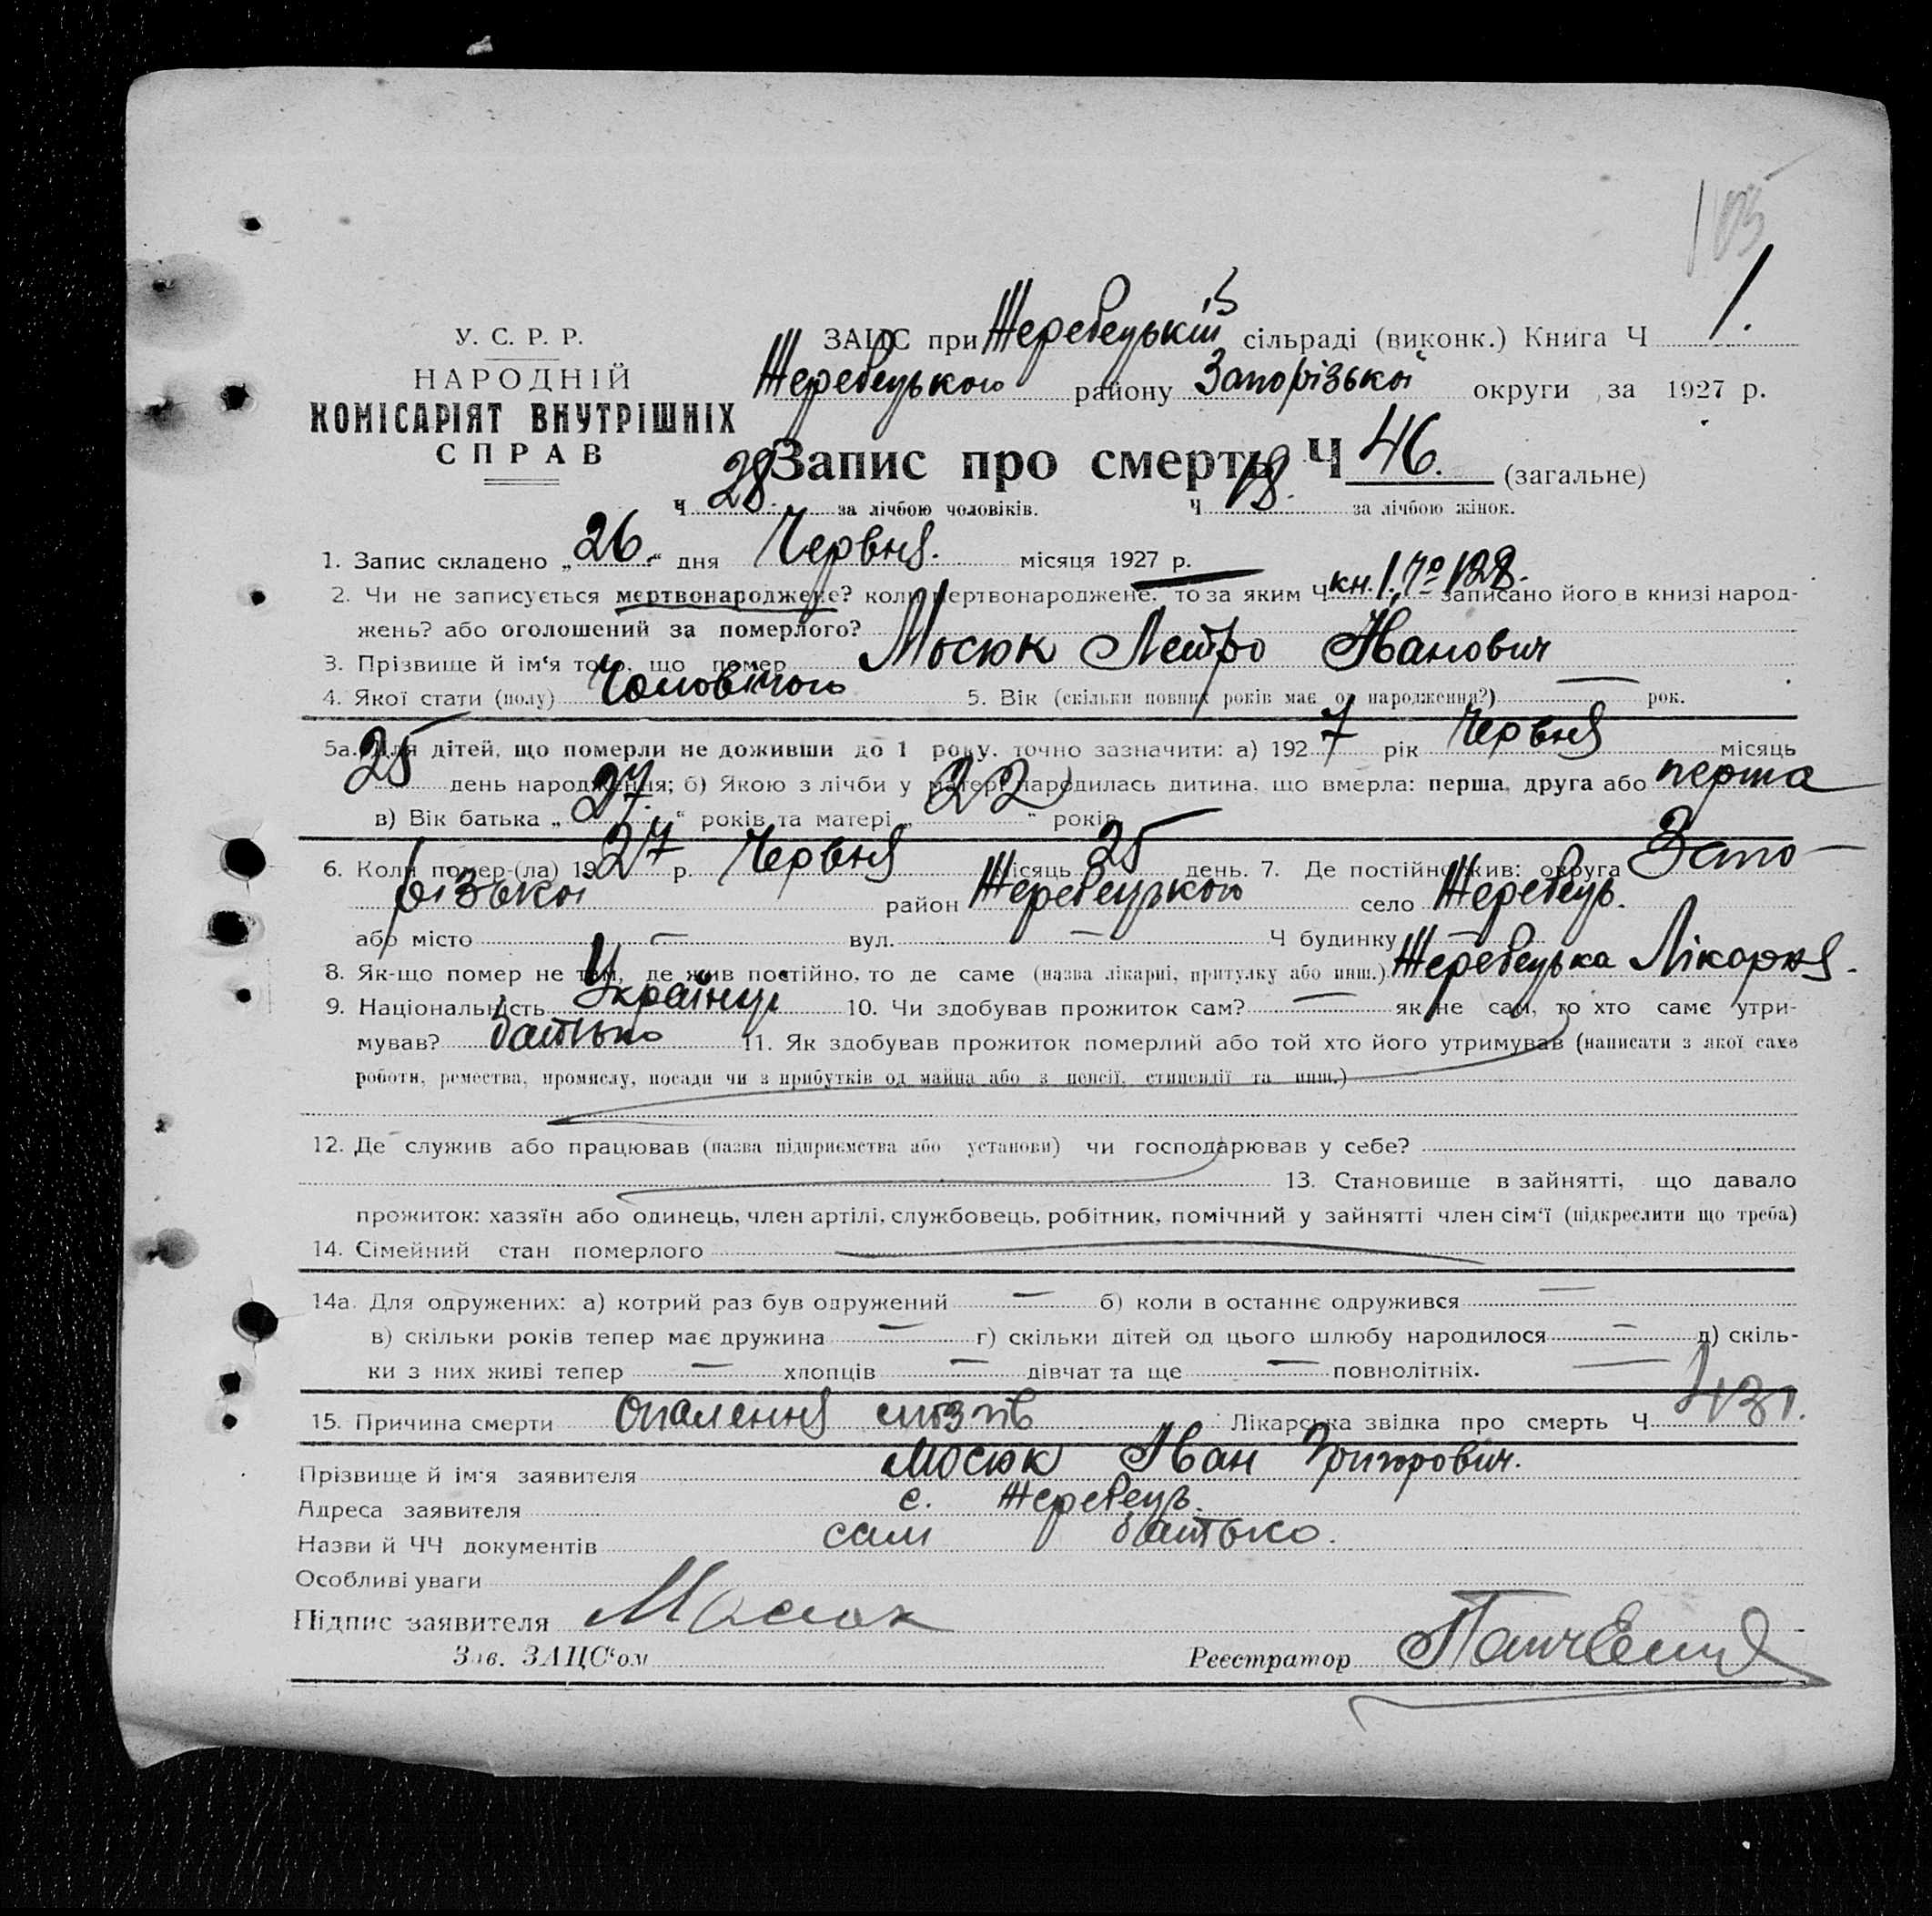 105
У. С. Р. Р.
НАРОДНІЙ
КОМІСАРІЯТ ВНУТРІШНІХ
СПРАВ
ЗАЦС при Жеребецькій сільраді (виконк.) Книга Ч 1.
Жеребецького району Запорізької округи за 1927 р.
Запис про смерть Ч 46. (загальне)
Ч 28. за лічбою чоловіків. Ч 18. за лічбою жінок.
1. Запис складено „26.“ дня Червня. місяця 1927 р.
2. Чи не записується мертвонароджене? коли мертвонароджене, то за яким Ч кн. 1, № 128. записано його в книзі народ-
жень? або оголошений за померлого?
3. Прізвище й ім'я того, що помер Мосюк Петро Іванович
4. Якої стати (полу) Чоловічого 5. Вік (скільки повних років має од народження?) — рок.
5а. Для дітей, що померли не доживши до 1 року, точно зазначити: а) 1927 рік Червня місяць
25 день народження; б) Якою з лічби у матері народилась дитина, що вмерла: перша, друга або перша
в) Вік батька „27.“ років та матері „22“ років
6. Коли помер-(ла) 1927 р. Червня місяць 25 день. 7. Де постійно жив: округа Запо-
різької район Жеребецького село Жеребець.
або місто — вул. — Ч будинку —
8. Як-що помер не там, де жив постійно, то де саме (назва лікарні, притулку або инш.) Жеребецька Лікарня.
9. Національність Українці 10. Чи здобував прожиток сам? — як не сам, то хто саме утри-
мував? батько 11. Як здобував прожиток померлий або той хто його утримував (написати з якої саме
роботи, ремества, промислу, посади чи з прибутків од майна або з пенсії, стипендії та инш.)
12. Де служив або працював (назва підприємства або установи) чи господарював у себе?
13. Становище в зайнятті, що давало
прожиток: хазяїн або одинець, член артілі, службовець, робітник, помічний у зайнятті член сім'ї (підкреслити що треба)
14. Сімейний стан померлого
14а. Для одружених: а) котрий раз був одружений — б) коли в останнє одружився —
в) скільки років тепер має дружина — г) скільки дітей од цього шлюбу народилося — д) скіль-
ки з них живі тепер — хлопців — дівчат та ще — повнолітніх. —
15. Причина смерти Опалення Лікарська звідка про смерть Ч 431.
Прізвище й ім'я заявителя Мосюк Іван Григорович.
Адреса заявителя с. Жеребець.
Назви й ЧЧ документів сам батько.
Особливі уваги
Підпис заявителя Мосюк
Зав. ЗАЦС'ом Реєстратор